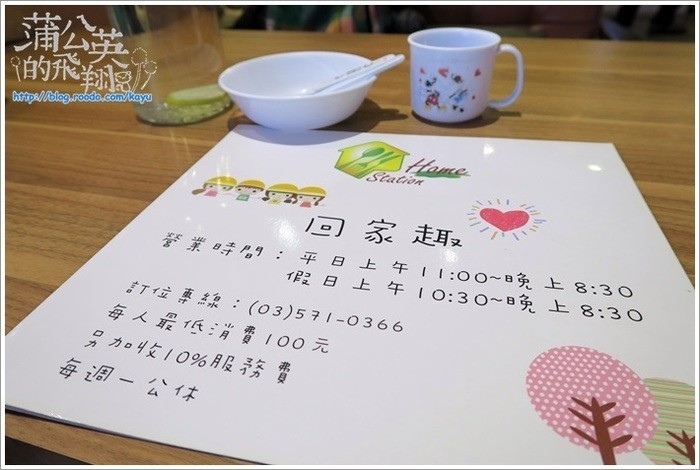 蒲公英
的飛翔
http://blog.roodo.com/kayu
Home
Station
回家趣
營業時間：平日上午11:00~晚上8:30
假日上午10:30~晚上8:30
訂位專線：(03)571-0366
每人最低消費100元
另加收10%服務費
每週一公休